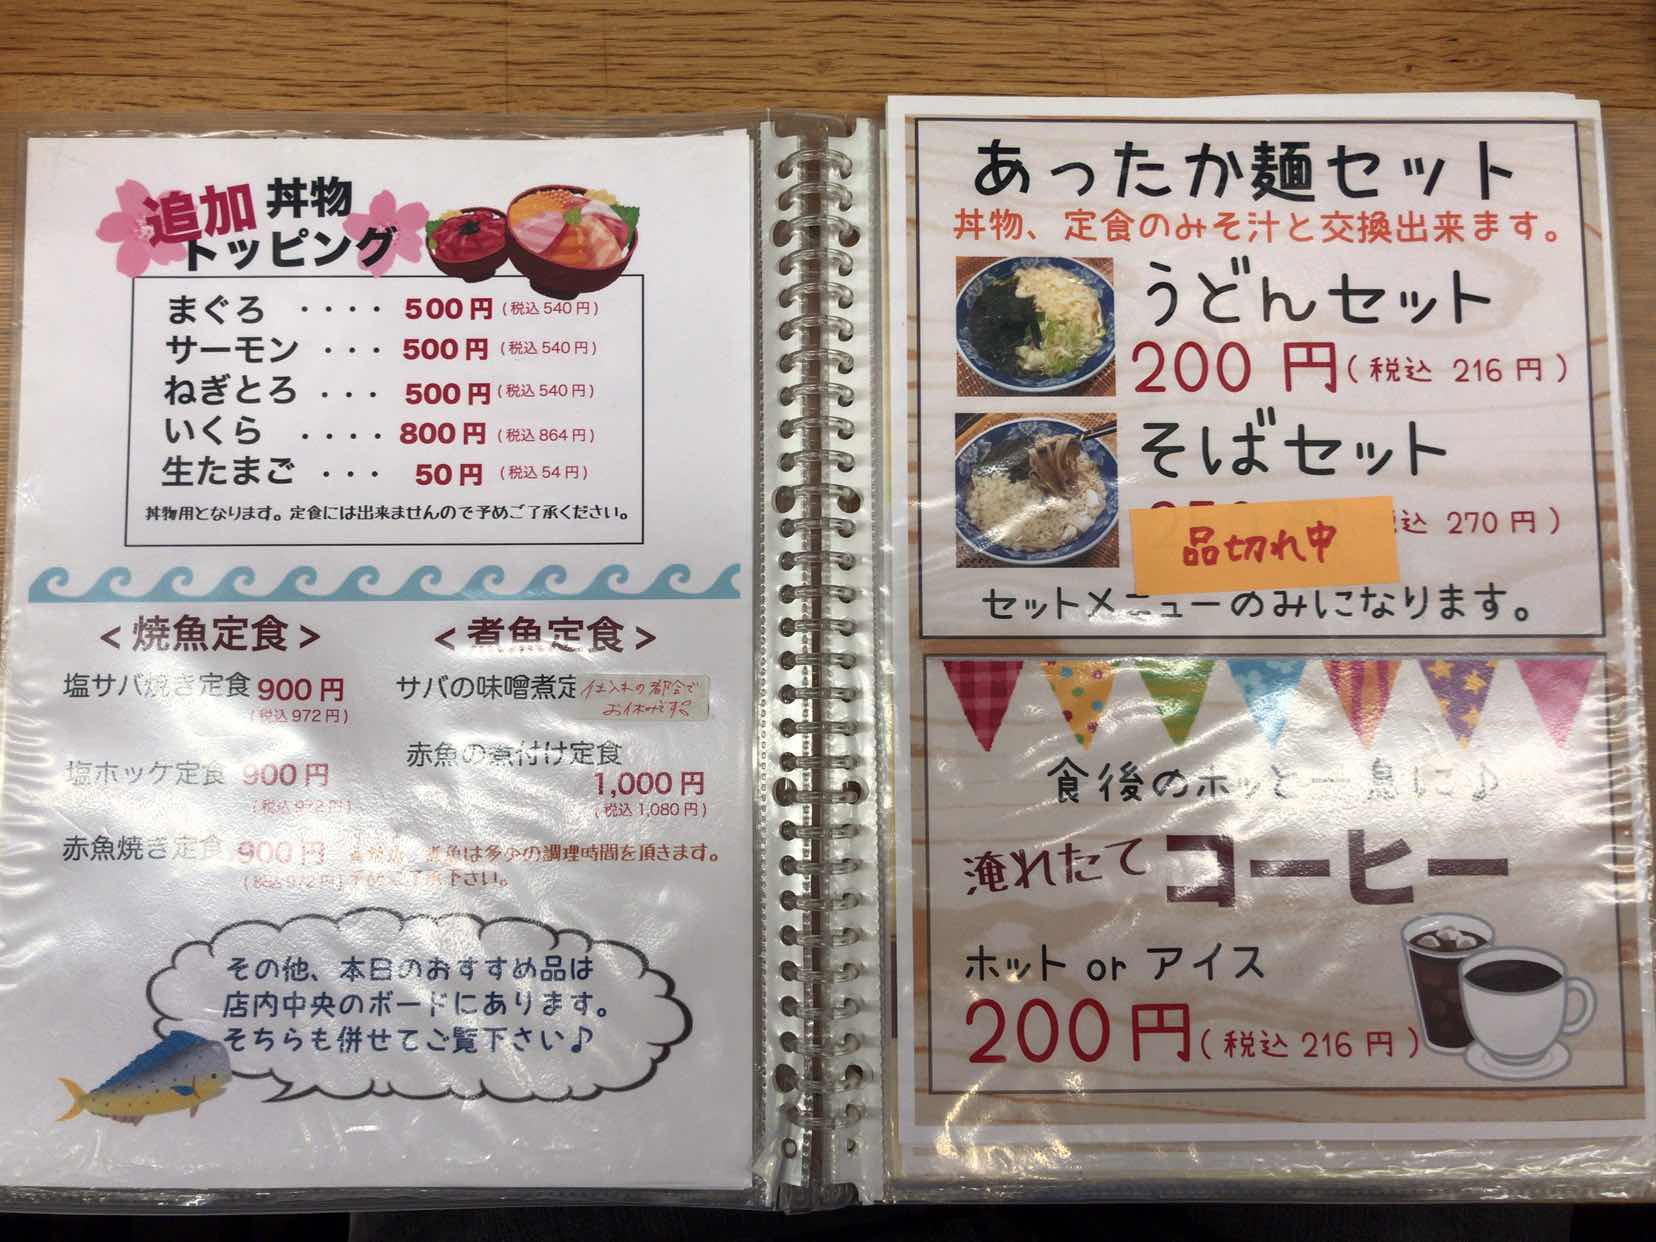 追加 丼物
トッピング
まぐろ ・・・・ 500円 (税込540円)
サーモン ・・・ 500円 (税込540円)
ねぎとろ ・・・ 500円 (税込540円)
いくら ・・・・ 800円 (税込864円)
生たまご ・・・ 50円 (税込54円)
丼物用となります。定食には出来ませんので予めご了承ください。
<焼魚定食>
塩サバ焼き定食 900円
(税込972円)
塩ホッケ定食 900円
(税込972円)
赤魚焼き定食 900円
(税込972円)
<煮魚定食>
サバの味噌煮定
仕入れの都合で
お休みです。
赤魚の煮付け定食
1,000円
(税込1,080円)
煮魚は多少の調理時間を頂きます。
予めご了承下さい。
その他、本日のおすすめ品は
店内中央のボードにあります。
そちらも併せてご覧下さい♪
あったか麺セット
丼物、定食のみそ汁と交換出来ます。
うどんセット
200円(税込 216円)
そばセット
込 270円)
品切れ中
セットメニューのみになります。
食後のホッと一息に♪
淹れたてコーヒー
ホット or アイス
200円(税込 216円)